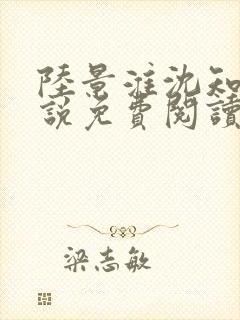 陸景淮沈知
說免費閱讀
梁志敏